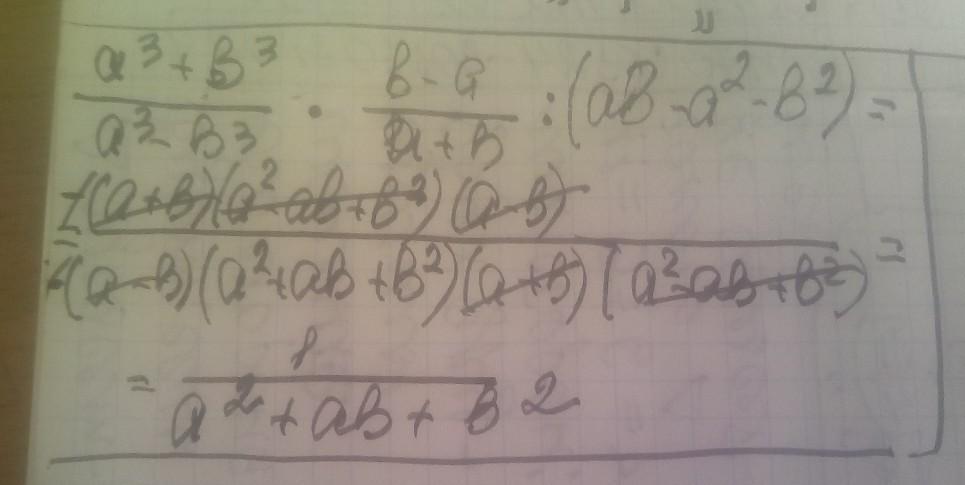 (a³ + b³)/(a³ - b³) · (b - a)/(a + b) : (ab - a² - b²) =
= -(a+b)(a² - ab + b²)(a - b)/-(a - b)(a² + ab + b²)(a + b)(a² - ab + b²) =
= 1/(a² + ab + b²)